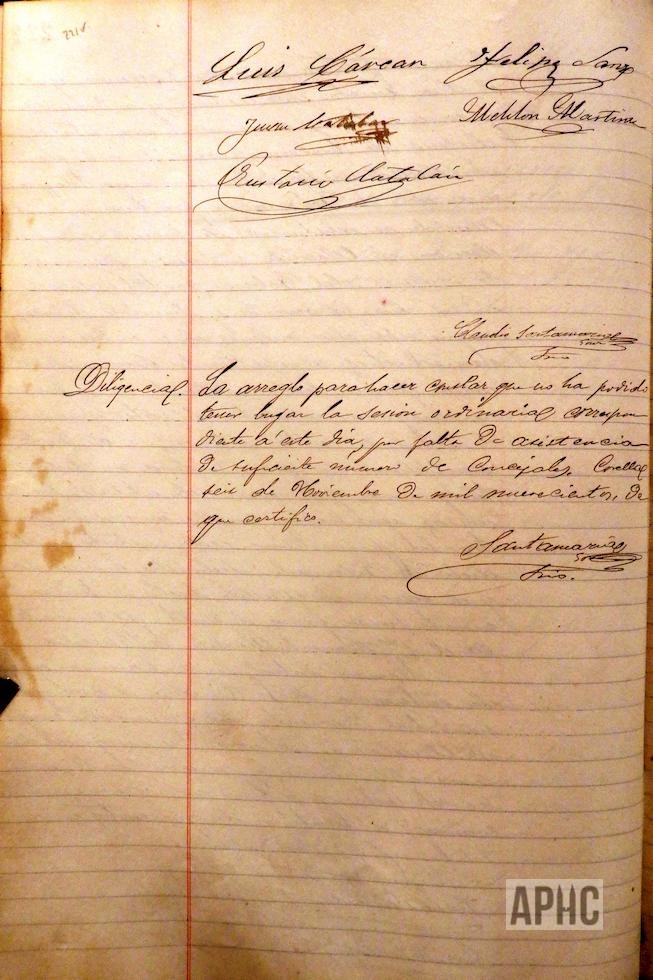 221v
Luis Cárcar Felipe Sanz
Juan
Meliton Martinez
Eustasio Catalán
Claudio Santamaria
Srio
Diligencia. La arreglo para hacer constar que no ha podido
tener lugar la sesion ordinaria correspon
diente á este día, por falta de asistencia
de suficiente número de Concejales, Corella
seis de Noviembre de mil nuevecientos, de
que certifico.
Santamaria
Srio.
APHC